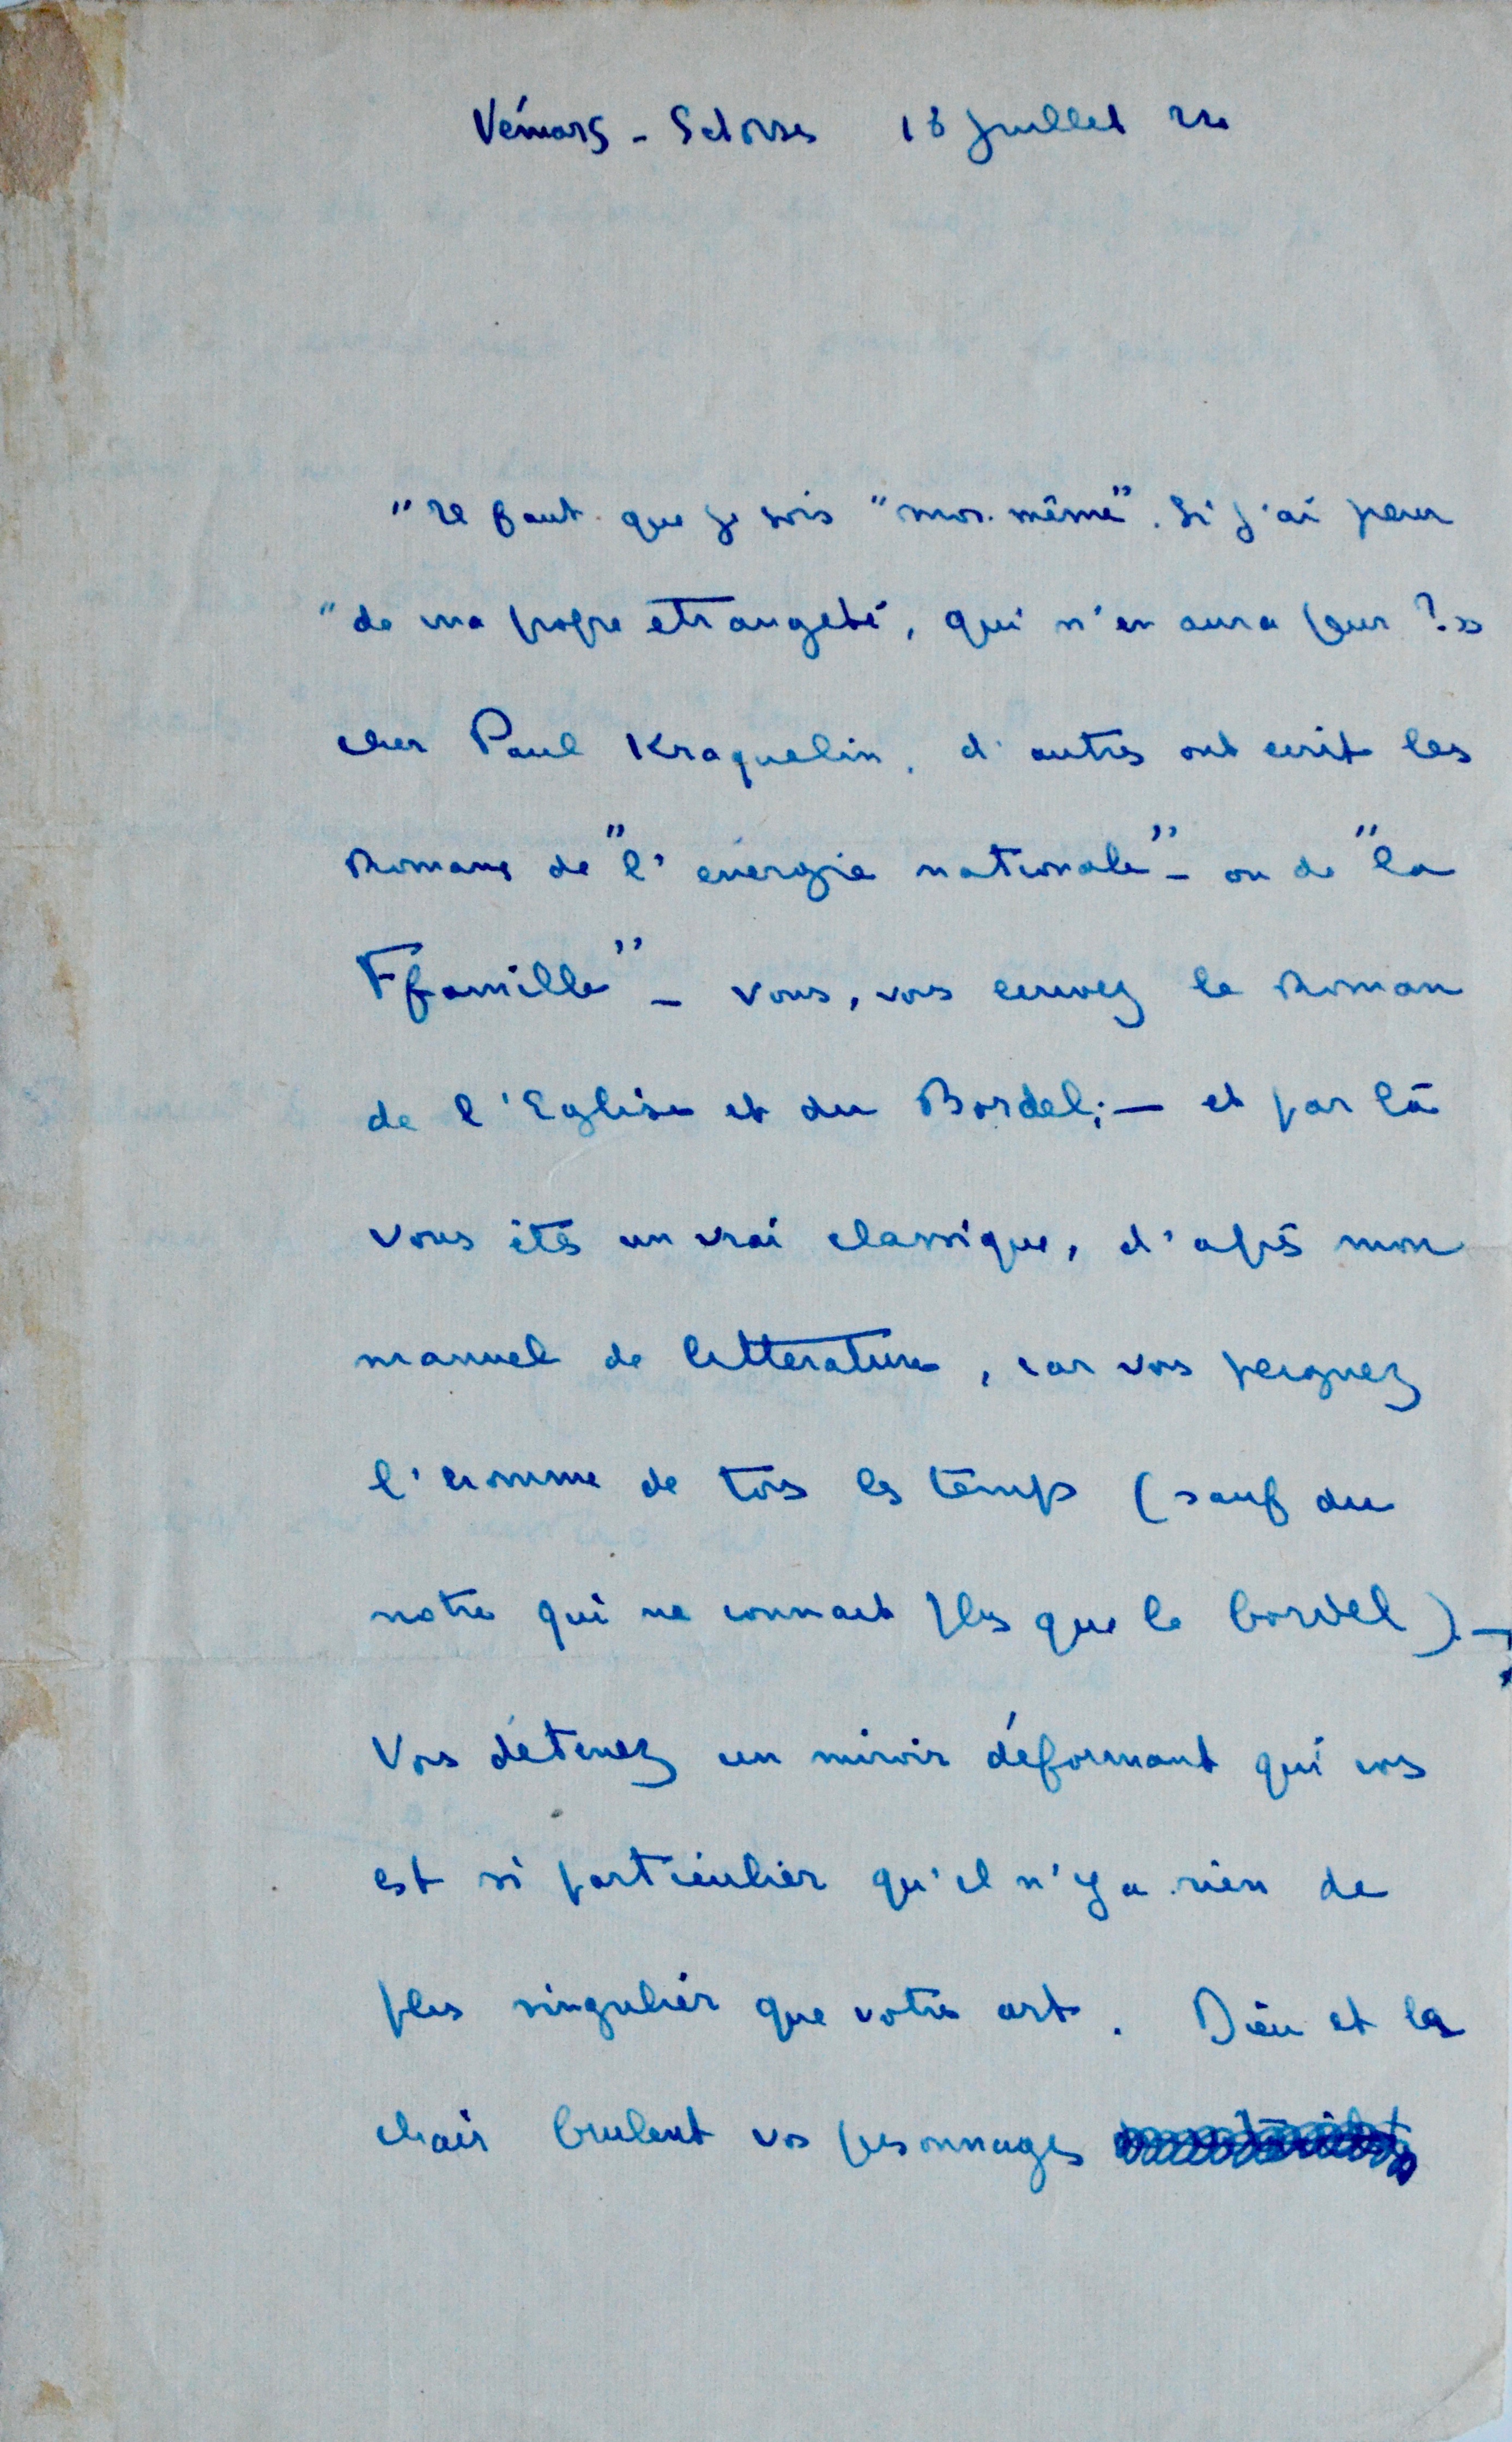 Vémars - Set Oise 18 juillet 24
"Il faut que je sois "moi-même". Si j'ai peur
"de ma propre etrangeté, qui n'en aura peur ?»
cher Paul Kraquelin, d'autres ont ecrit les
Romans de "l'energie nationale" - ou de "la
Ffamille" - vous, vous ecrivez le Roman
de l'Eglise et du Bordel; — et par là
vous êtes un vrai classique, d'après mon
manuel de litterature, car vous peignez
l'homme de tous les temps (sauf du
notre qui ne connait plus que le bordel). —
Vous détenez un miroir déformant qui vous
est si particulier qu'il n'y a rien de
plus singulier que votre art. Dieu et la
chair brulent vos personnages